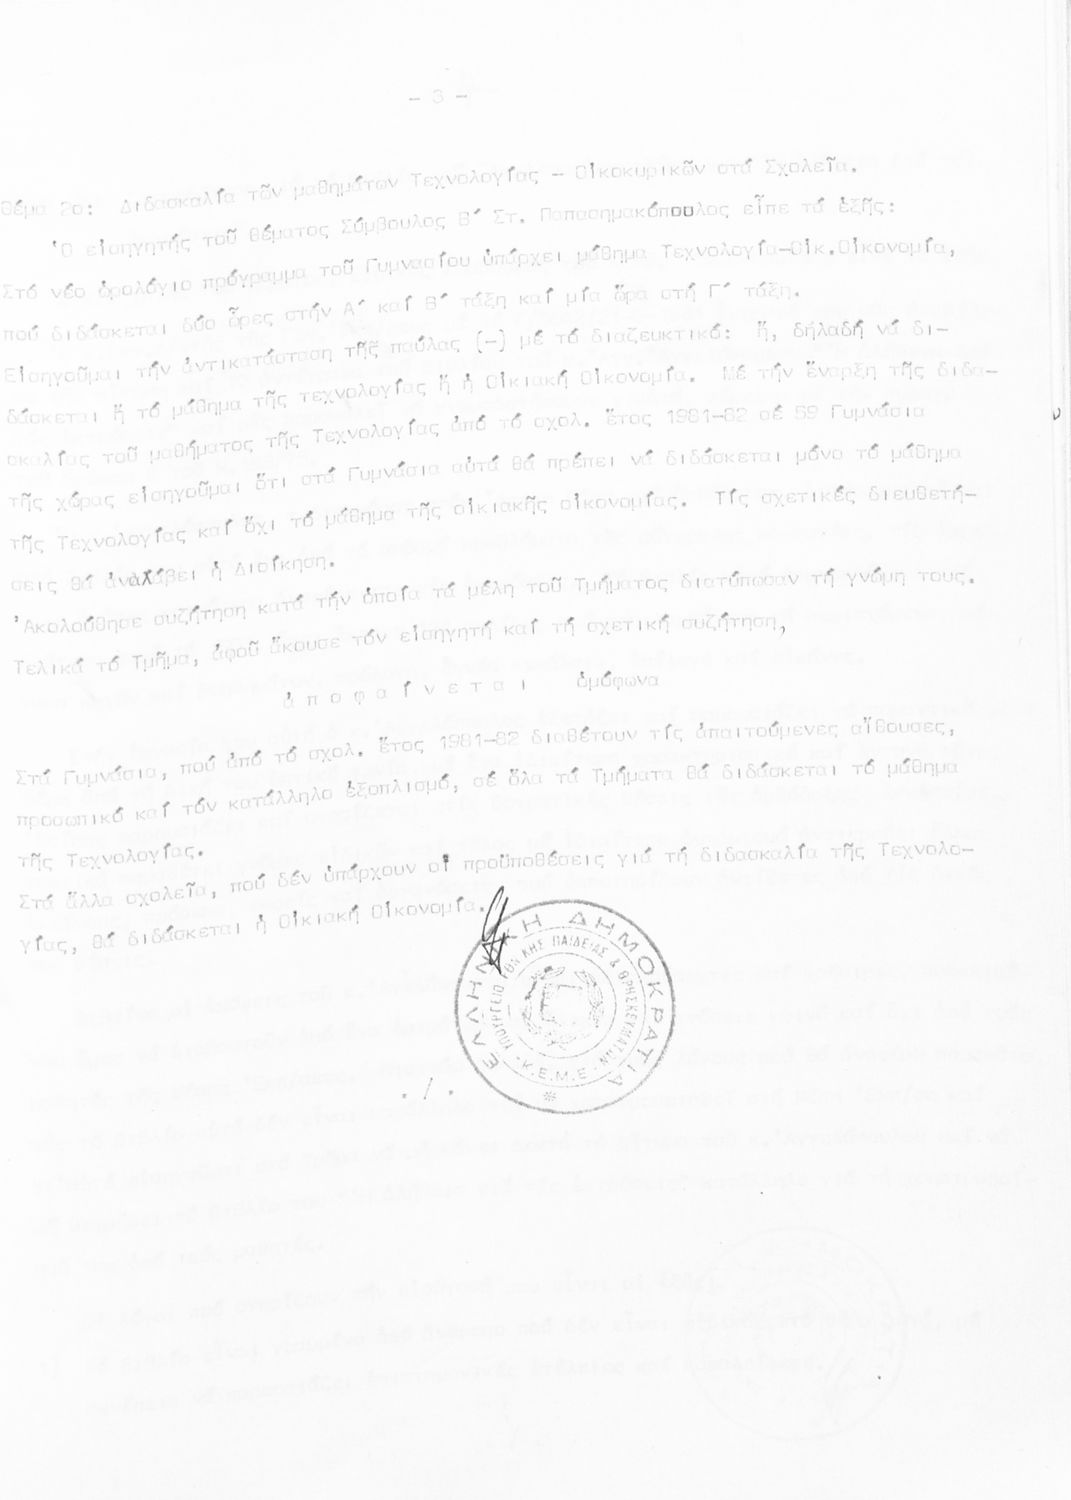 - 3 -
Θέμα 2ο: Διδασκαλία τῶν μαθημάτων Τεχνολογίας - Οἰκοκυρικῶν στά Σχολεῖα.
Ὁ εἰσηγητής τοῦ θέματος Σύμβουλος Β΄ Στ. Παπασημακόπουλος εἶπε τά ἑξῆς:
Στό νέο ὡρολόγιο πρόγραμμα τοῦ Γυμνασίου ὑπάρχει μάθημα Τεχνολογία-Οἰκ.Οἰκονομία,
πού διδάσκεται δύο ὧρες στήν Α΄ καί Β΄ τάξη καί μία ὥρα στή Γ΄ τάξη.
Εἰσηγοῦμαι τήν ἀντικατάσταση τῆς παύλας (-) μέ τό διαζευκτικό: ἤ, δήλαδή νά δι-
δάσκεται ἤ τό μάθημα τῆς τεχνολογίας ἤ ἡ Οἰκιακή Οἰκονομία. Μέ τήν ἔναρξη τῆς διδα-
σκαλίας τοῦ μαθήματος τῆς Τεχνολογίας ἀπό τό σχολ. ἔτος 1981-82 σέ 59 Γυμνάσια
τῆς χώρας εἰσηγοῦμαι ὅτι στά Γυμνάσια αὐτά θά πρέπει νά διδάσκεται μόνο τό μάθημα
τῆς Τεχνολογίας καί ὄχι τό μάθημα τῆς οἰκιακῆς οἰκονομίας. Τίς σχετικές διευθετή-
σεις θά ἀναλάβει ἡ Διοίκηση.
Ἀκολούθησε συζήτηση κατά τήν ὁποία τά μέλη τοῦ Τμήματος διατύπωσαν τή γνώμη τους.
Τελικά τό Τμῆμα, ἀφοῦ ἄκουσε τόν εἰσηγητή καί τή σχετική συζήτηση,
ἀ π ο φ α ί ν ε τ α ι ὁμόφωνα
Στά Γυμνάσια, πού ἀπό τό σχολ. ἔτος 1981-82 διαθέτουν τίς ἀπαιτούμενες αἴθουσες,
προσωπικό καί τόν κατάλληλο ἐξοπλισμό, σέ ὅλα τά Τμήματα θά διδάσκεται τό μάθημα
τῆς Τεχνολογίας.
Στά ἄλλα σχολεῖα, πού δέν ὑπάρχουν οἱ προϋποθέσεις γιά τή διδασκαλία τῆς Τεχνολο-
γίας, θά διδάσκεται ἡ Οἰκιακή Οἰκονομία.
ΕΛΛΗΝΙΚΗ ΔΗΜΟΚΡΑΤΙΑ
ΥΠΟΥΡΓΕΙΟ ΕΘΝΙΚΗΣ ΠΑΙΔΕΙΑΣ & ΘΡΗΣΚΕΥΜΑΤΩΝ
- Κ.Ε.Μ.Ε -
./.